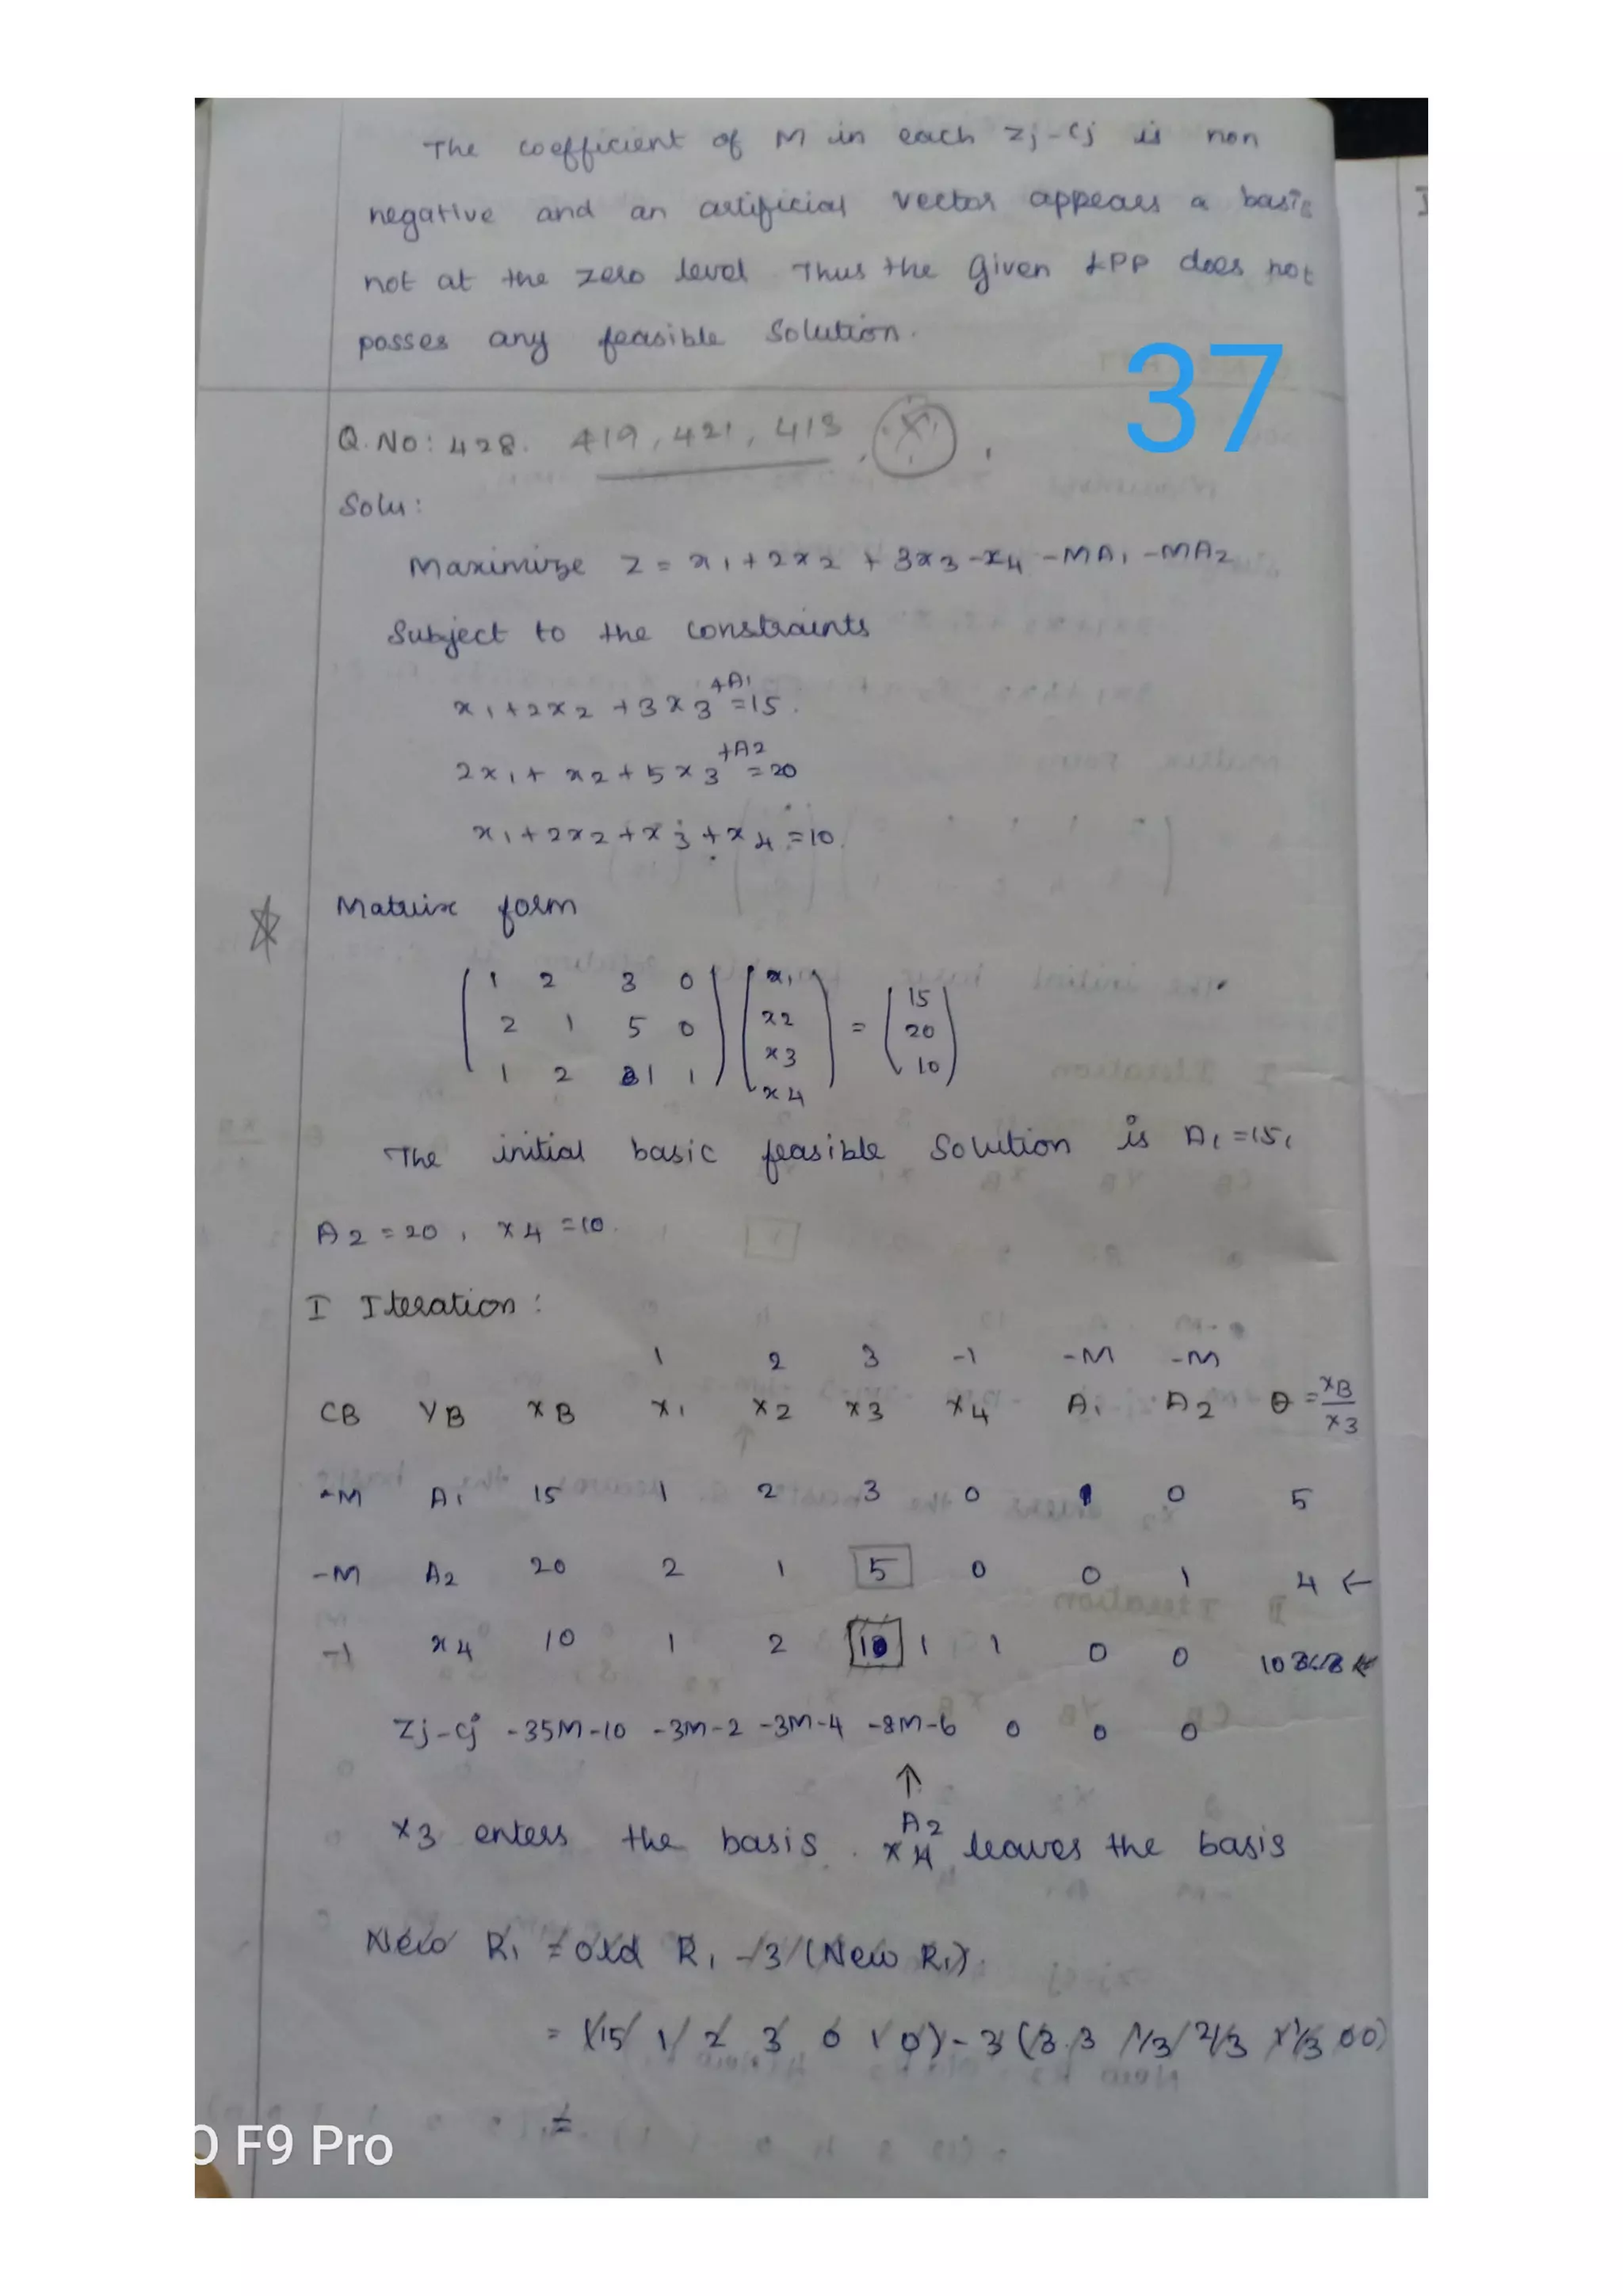 The coefficient of M in each Zj-Cj is non
negative and an artificial vector appears a basis
not at the zero level Thus the given LPP does not
posses any feasible Solution.
37
Q.No: 428. 419, 421, 413,
Solu:
Maximize Z = x1 + 2x2 + 3x3 - x4 - MA1 - MA2
Subject to the constraints
x1 + 2x2 + 3x3 +A1 = 15.
2x1 + x2 + 5x3 +A2 = 20
x1 + 2x2 + x3 + x4 = 10.
Matrix form
1 2 3 0 x1 15
2 1 5 0 x2 = 20
1 2 1 1 x3 10
x4
The initial basic feasible Solution is A1 = 15,
A2 = 20, x4 = 10.
I Iteration:
1 2 3 -1 -M -M
CB YB XB X1 X2 X3 X4 A1 A2 θ = XB/X3
-M A1 15 1 2 3 0 1 0 5
-M A2 20 2 1 5 0 0 1 4 ←
-1 x4 10 1 2 1 1 0 0 10
Zj-Cj -35M-10 -3M-2 -3M-4 -8M-6 0 0 0
↑
X3 enters the basis. A2 leaves the basis
New R1 = old R1 - 3 (New R1)
= (15 1 2 3 0 1 0) - 3 (3.3 1/3 2/3 1/3 0 0)
=
O F9 Pro